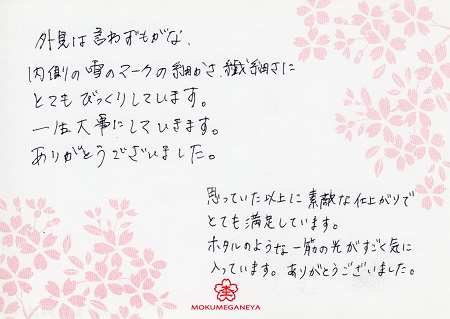 外見は言わずもがな、
内側の雪のマークの細かさ、繊細さに
とてもびっくりしています。
一生大事にしていきます。
ありがとうございました。
思っていた以上に素敵な仕上がりで
とても満足しています。
ホタルのような一筋の光がすごく気に
入っています。ありがとうございました。
MOKUMEGANEYA